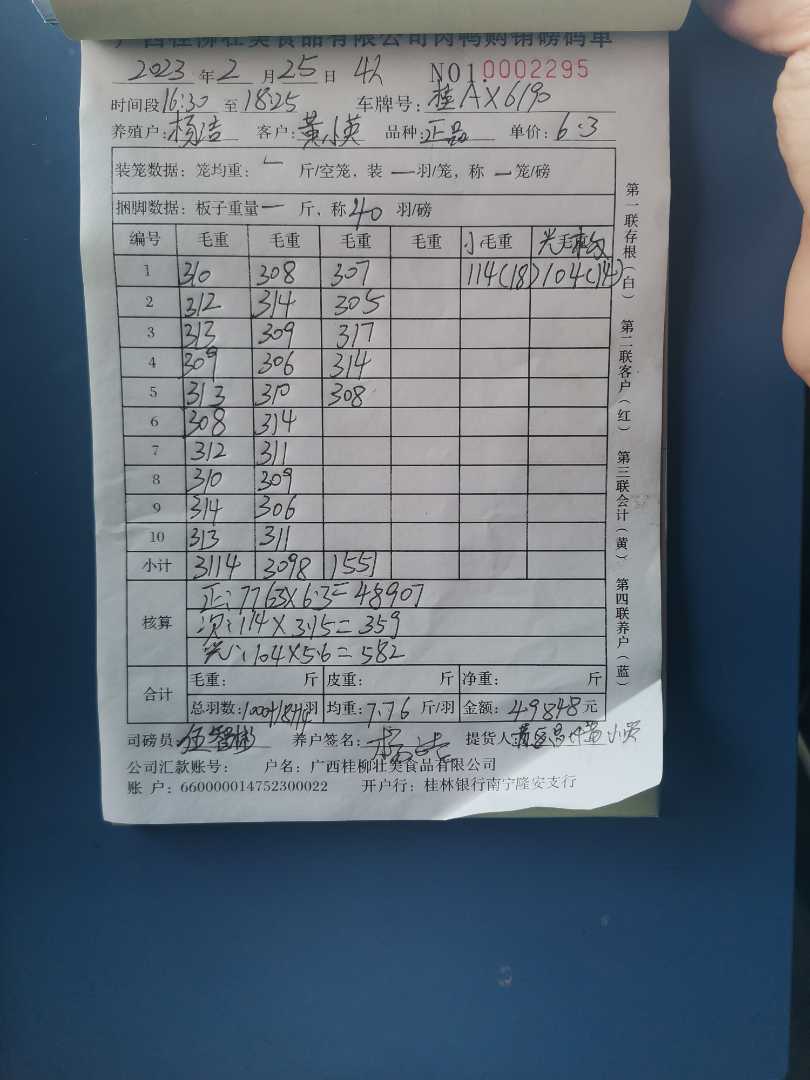 广西桂柳壮美食品有限公司肉鸭购销磅码单
2023 年 2 月 25 日 NO1.0002295
时间段 16:30 至 18:25 车牌号: 桂AX6190
养殖户: 杨洁 客户: 黄小英 品种: 正品 单价: 6.3
装笼数据: 笼均重: 一 斤/空笼, 装 一 羽/笼, 称 一 笼/磅
捆脚数据: 板子重量 一 斤, 称 40 羽/磅
编号 毛重 毛重 毛重 毛重 小毛重 光毛
1 310 308 307 114(18) 104(14)
2 312 314 305
3 313 309 317
4 309 306 314
5 313 310 308
6 308 314
7 312 311
8 310 309
9 314 306
10 313 311
小计 3114 3098 1551
核算 正: 7763×6.3=48907
次: 114×3.15=359
光: 104×5.6=582
合计 毛重: 斤 皮重: 斤 净重: 斤
总羽数: 1000/18/14羽 均重: 7.76 斤/羽 金额: 49848 元
司磅员: 养户签名: 提货人: 黄小英
公司汇款账号: 户名: 广西桂柳壮美食品有限公司
账 户: 660000014752300022 开户行: 桂林银行南宁隆安支行
第一联存根(白) 第二联客户(红) 第三联会计(黄) 第四联养户(蓝)